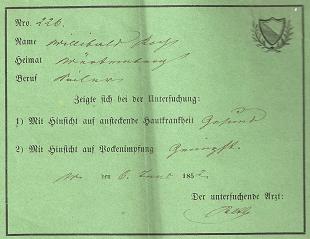 Nro. 226.
Name Willibald
Heimat Württemberg
Beruf
Zeigte sich bei der Untersuchung:
1) Mit Hinsicht auf ansteckende Hautkrankheit Gesund
2) Mit Hinsicht auf Pockenimpfung Geimpft.
den 6. Juni 1852
Der untersuchende Arzt: